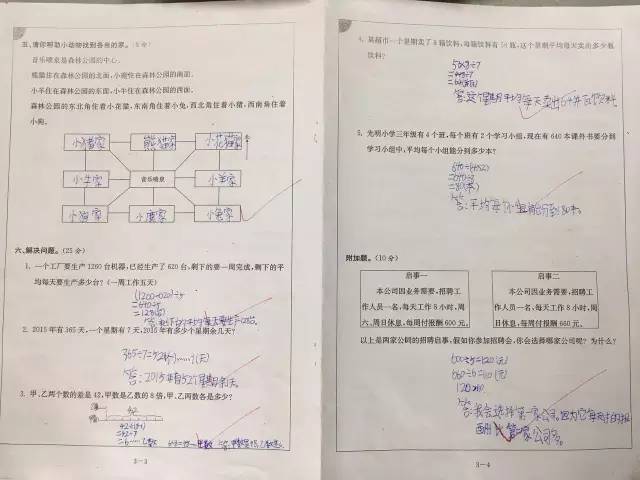 五、请你帮助小动物找到各自的家。(5分)
音乐喷泉是森林公园的中心。
熊猫住在森林公园的北面,小鹿住在森林公园的南面。
小羊住在森林公园的东面,小牛住在森林公园的西面。
森林公园的东北角住着小花猫,东南角住着小兔,西北角住着小猪,西南角住着
小狗。
小猪家 熊猫家 小花猫家
小牛家 音乐喷泉 小羊家
小狗家 小鹿家 小兔家
六、解决问题。(25分)
1. 一个工厂要生产1260台机器,已经生产了620台,剩下的要一周完成,剩下的平
均每天要生产多少台?(一周工作五天)
=640÷5
=128(台)
2. 2015年有365天,一个星期有7天,2015年有多少个星期余几天?
365÷7=52(个)……1(天)
答:2015年有52个星期余1天。
3. 甲、乙两个数的差是42,甲数是乙数的8倍,甲、乙两数各是多少?
42
=42÷7
3-3
4. 某超市一个星期卖了8箱饮料,每箱饮料有56瓶,这个星期平均每天卖出多少瓶
饮料?
56×8÷7
=448÷7
=64(瓶)
答:这个星期平均每天卖出64瓶饮料。
5. 光明小学三年级有4个班,每个班有2个学习小组,现在有640本课外书要分到
学习小组中,平均每个小组能分到多少本?
640÷(4×2)
=640÷8
=80(本)
答:平均每个小组能分到80本。
附加题。(10分)
启事一
本公司因业务需要,招聘工
作人员一名,每天工作8小时,周
六、周日休息,每周付报酬600元。
启事二
本公司因业务需要,招聘工
作人员一名,每天工作8小时,周
日休息,每周付报酬660元。
以上是两家公司的招聘启事,假如你参加招聘会,你会选择哪家公司呢?为什么?
600÷5=120(元)
660÷6=110(元)
120>110
答:我会选择第一家公司,因为它每天付的报
酬比第二家公司多。
3-4